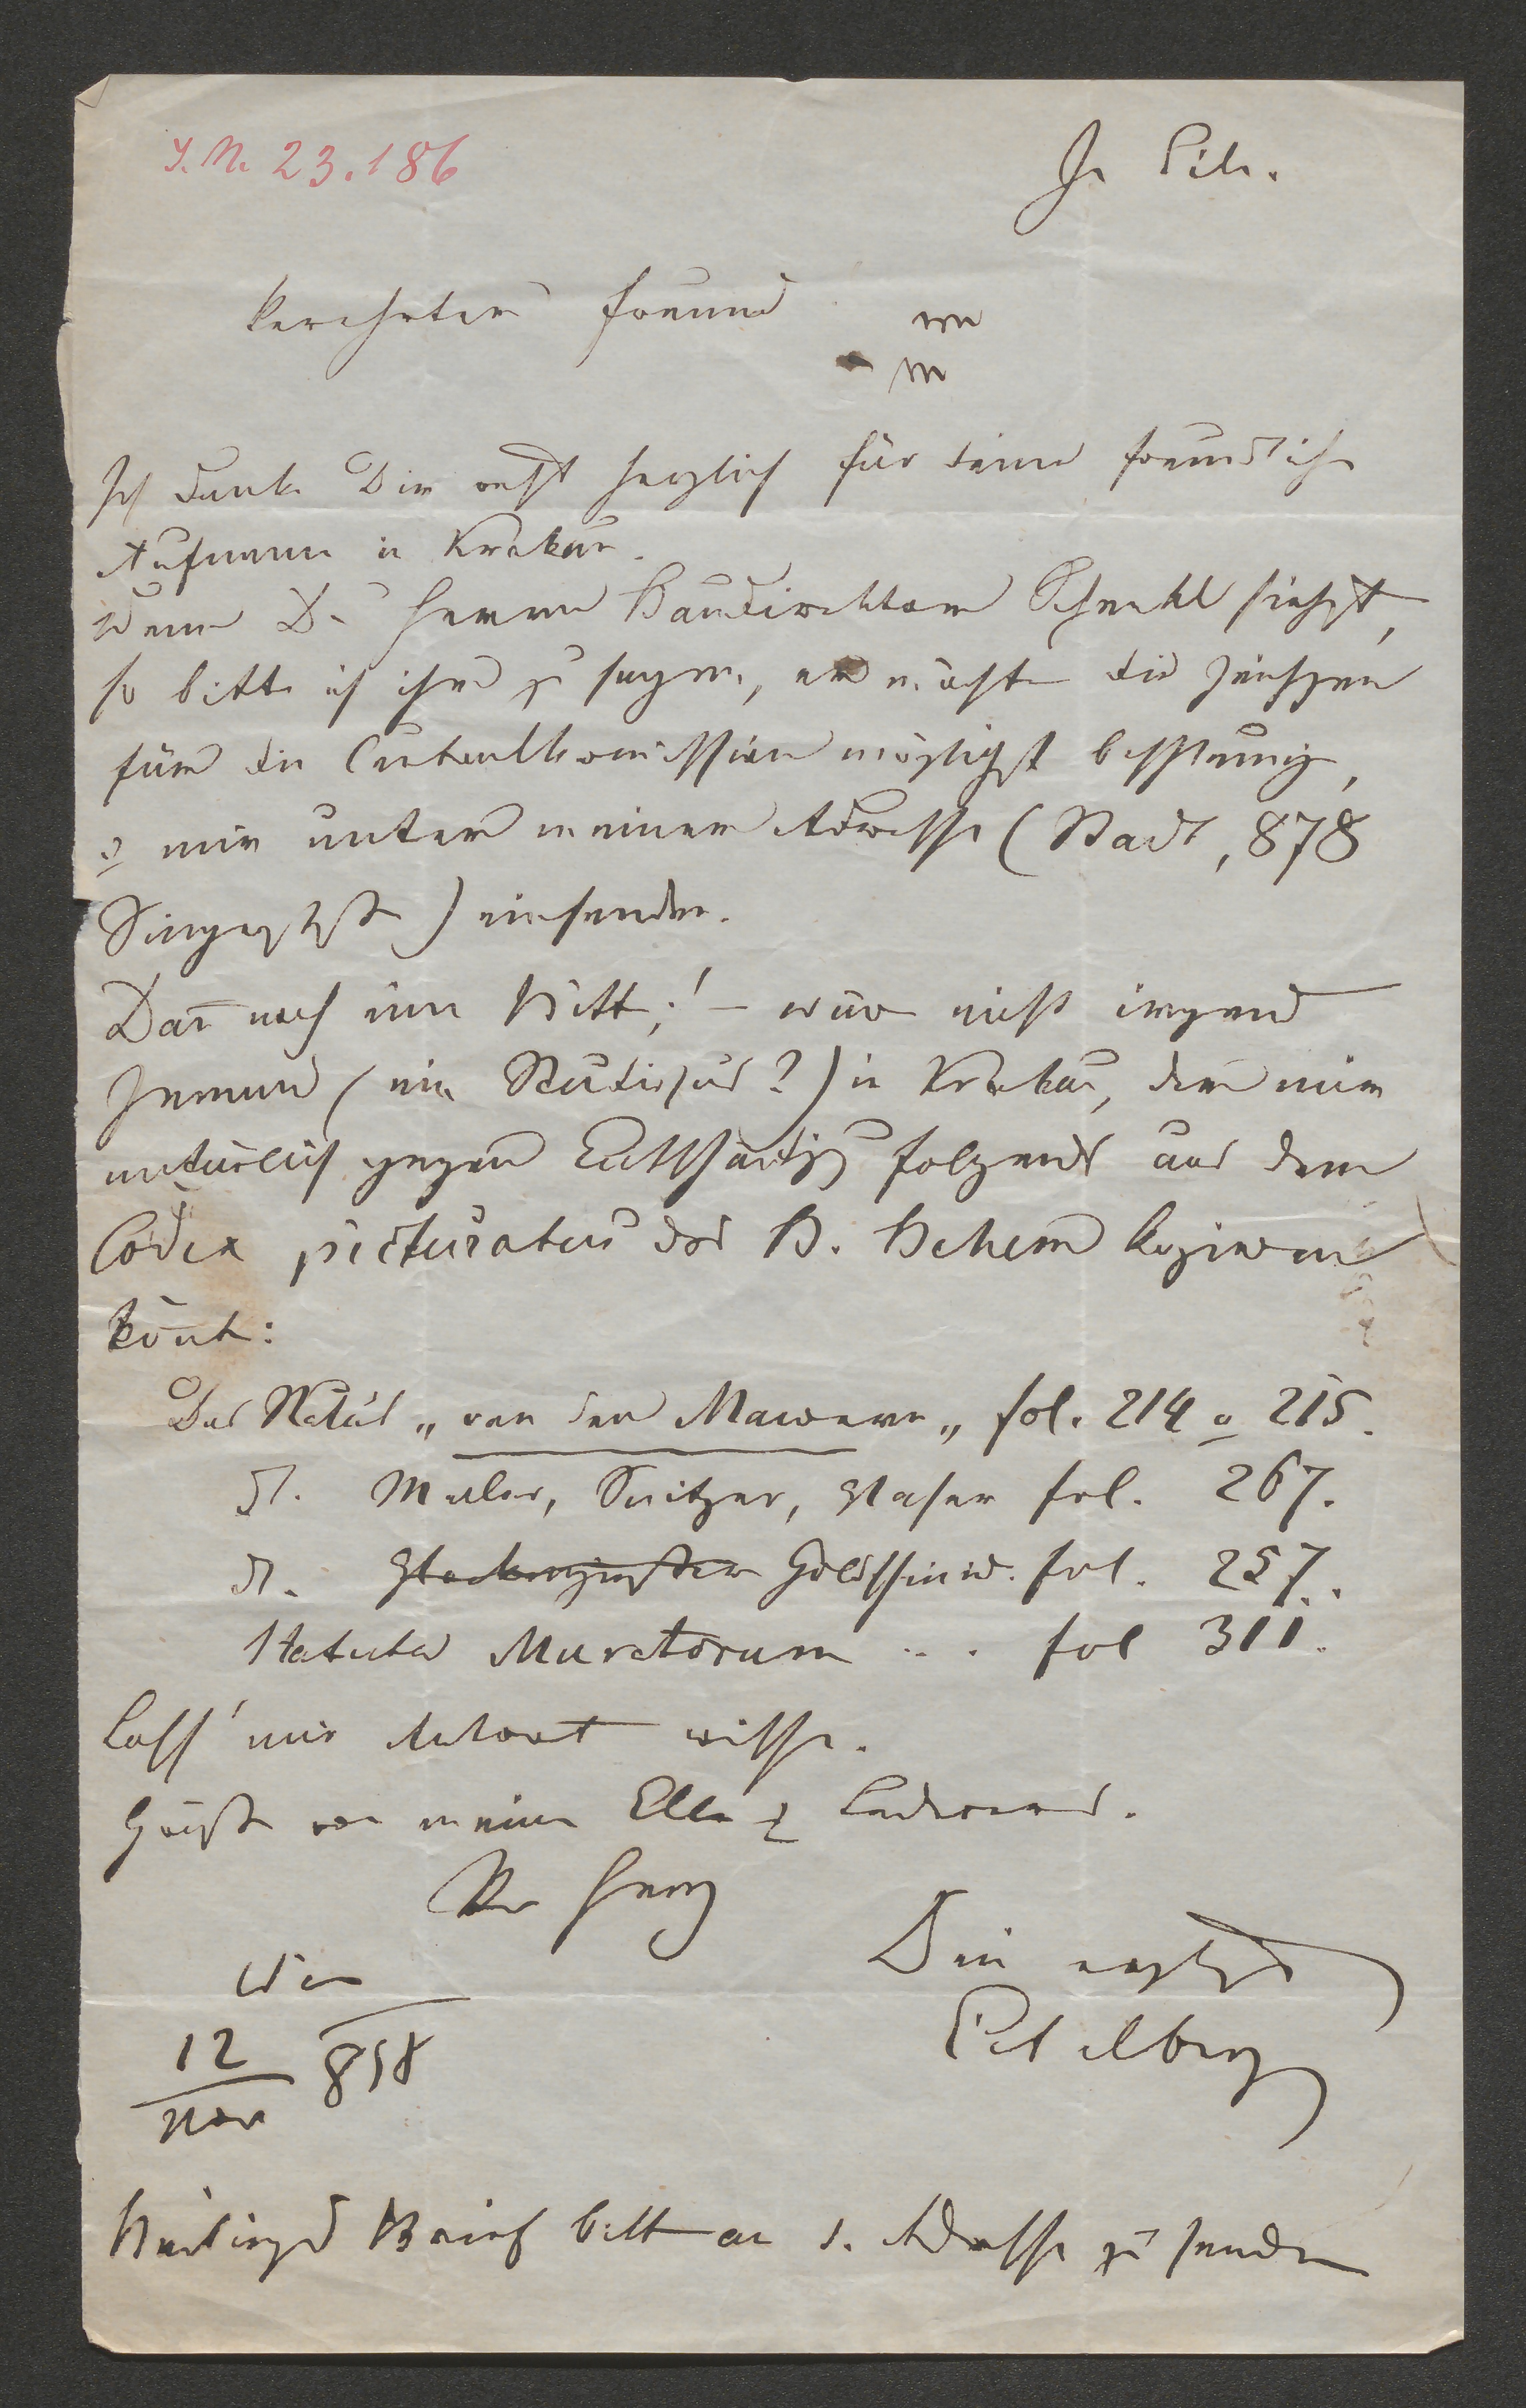 I. N. 23.186
In Eile.
Verehrter Freund
m
m
Ich danke Dir recht herzlich für deine freundliche
Aufname in Krakau.
Wenn Du Herrn Baudirektor siehst,
so bitte ich ihn zu sagen, er möchte die
für die Centralkomission möglichst beschleunig,
u mir unter meiner Adresse (Stadt, 878
Singerstrsse) einsenden.
Dan noch eine Bitte! – wäre nicht irgend
Jemand (ein Studiosus?) in Krakau, der mir
natürlich gegen Entschädigg folgends aus dem
Codex picturatus des B. Behem kopieren
könte:
Das Statut „von den Mawrern„ fol. 214 u 215.
dt. Maler, Snitzer, Glaser fol. 267.
dt. Glockengiesser Goldschmid. fol. 257.
Statuta Muratorum ... fol 311.
Lass' mir Antwort wissen.
Grüsse von meinen Elle &
Von Herz
Dein
Eitelberg
Wien
12 / Nov 858
Beiliegd Brief bitte an s. Adresse zu senden